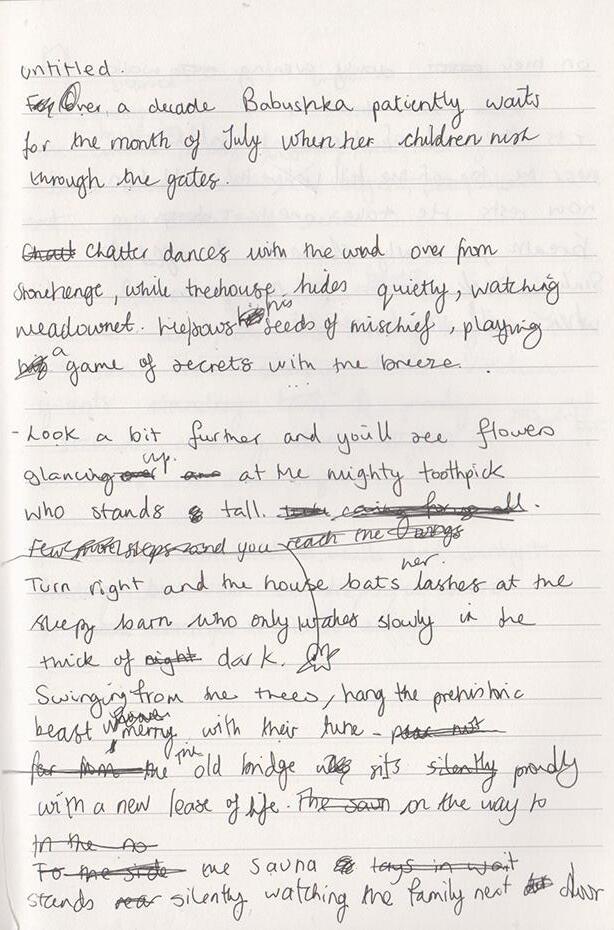 untitled.
For Over a decade Babushka patiently waits
for the month of July when her children rush
through the gates.
Chatt Chatter dances with the wind over from
stonehenge, while treehouse hides quietly, watching
meadownet. He sows his seeds of mischief, playing
a game of secrets with the breeze.
- Look a bit further and you'll see flowers
glancing over up. at the mighty toothpick
who stands tall. caring for us all.
Few more steps and you reach the swings
Turn right and the house bats her lashes at the
sleepy barn who only wakes slowly in the
thick of night dark.
Swinging from the trees, hang the prehistoric
beast merry with their tune -
far from the the old bridge sits silently proudly
with a new lease of life. The saun on the way to
In the no
To the side the sauna lays in wait
stands near silently watching the family next door